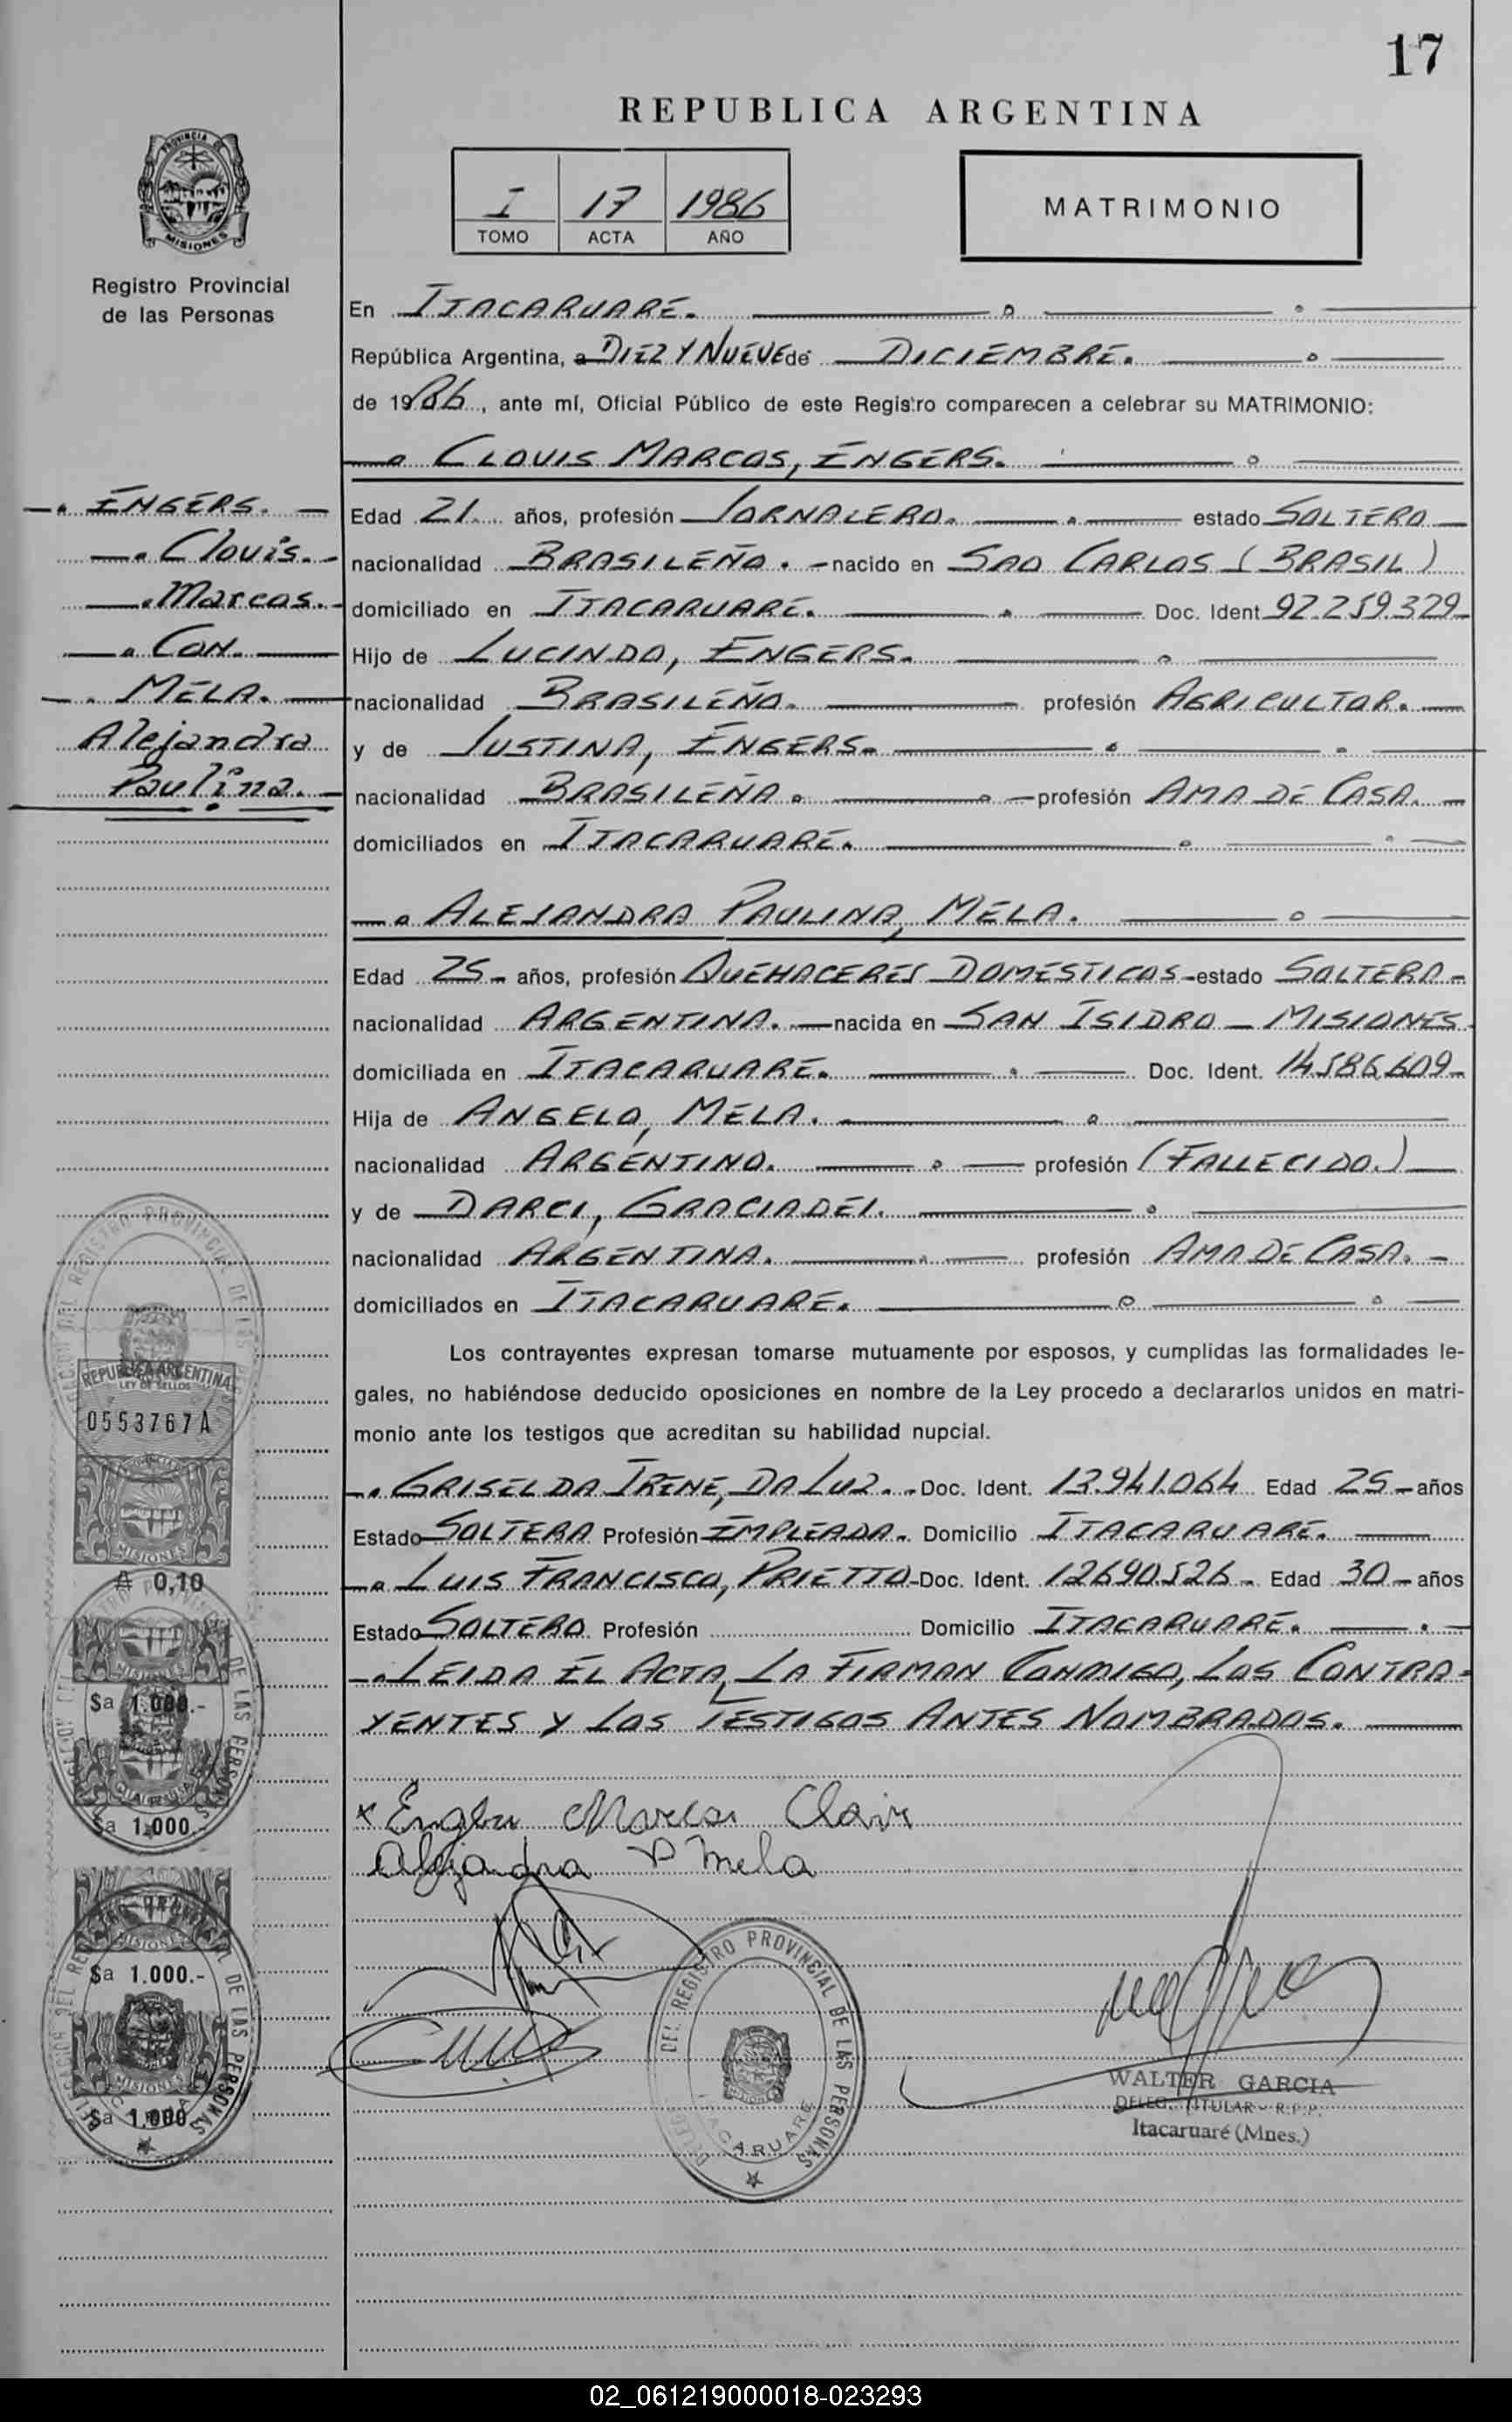 17
REPUBLICA ARGENTINA
I 17 1986
TOMO ACTA AÑO
MATRIMONIO
PROVINCIA DE
MISIONES
Registro Provincial
de las Personas
En ITACARUARE.
República Argentina, a DIEZ Y NUEVE de DICIEMBRE.
de 1986, ante mí, Oficial Público de este Registro comparecen a celebrar su MATRIMONIO:
CLOUIS MARCOS, ENGERS.
Edad 21 años, profesión JORNALERO. estado SOLTERO
nacionalidad BRASILEÑO. nacido en SAO CARLOS (BRASIL)
domiciliado en ITACARUARE. Doc. Ident. 92.259.329
Hijo de LUCINDO, ENGERS.
nacionalidad BRASILEÑO. profesión AGRICULTOR.
y de JUSTINA, ENGERS.
nacionalidad BRASILEÑA. profesión AMA DE CASA.
domiciliados en ITACARUARE.
ENGERS.
Clouis.
Marcos.
CON.
MELA.
Alejandra
Paulina.
ALEJANDRA PAULINA, MELA.
Edad 25 años, profesión QUEHACERES DOMESTICOS estado SOLTERA
nacionalidad ARGENTINA. nacida en SAN ISIDRO - MISIONES
domiciliada en ITACARUARE. Doc. Ident. 14.586.609
Hija de ANGELO, MELA.
nacionalidad ARGENTINO. profesión (FALLECIDO.)
y de DARCI, GRACIADEI.
nacionalidad ARGENTINA. profesión AMA DE CASA.
domiciliados en ITACARUARE.
Los contrayentes expresan tomarse mutuamente por esposos, y cumplidas las formalidades le-
gales, no habiéndose deducido oposiciones en nombre de la Ley procedo a declararlos unidos en matri-
monio ante los testigos que acreditan su habilidad nupcial.
GRISELDA IRENE, DA LUZ. Doc. Ident. 13.941.064 Edad 25 años
Estado SOLTERA Profesión EMPLEADA. Domicilio ITACARUARE.
LUIS FRANCISCO, PRIETTO Doc. Ident. 12690.526 Edad 30 años
Estado SOLTERO Profesión Domicilio ITACARUARE.
LEIDA EL ACTA, LA FIRMAN CONMIGO, LOS CONTRA-
YENTES Y LOS TESTIGOS ANTES NOMBRADOS.
REPUBLICA ARGENTINA
LEY DE SELLOS
0553767A
MISIONES
₳ 0,10
$a 1.000.-
$a 1.000.-
MISIONES
$a 1.000.-
MISIONES
$a 1.000
DEL REGISTRO PROVINCIAL DE LAS PERSONAS
x Engers Marcos Clovis
Alejandra P Mela
DEL REGISTRO PROVINCIAL DE LAS PERSONAS
WALTER GARCIA
DELEG. TITULAR - R.P.P.
Itacaruaré (Mnes.)
02_061219000018-023293